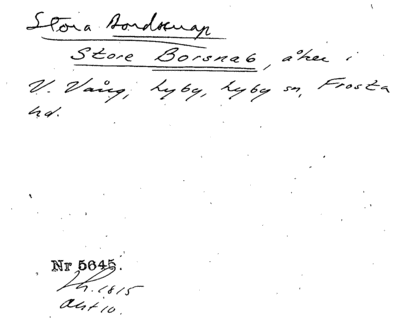 Stora Bordsnap
Store Borsnab, åker i
V. Vång, Lyby, Lyby sn, Frosta
hd.
Nr 5645.
1815
Akt 10.